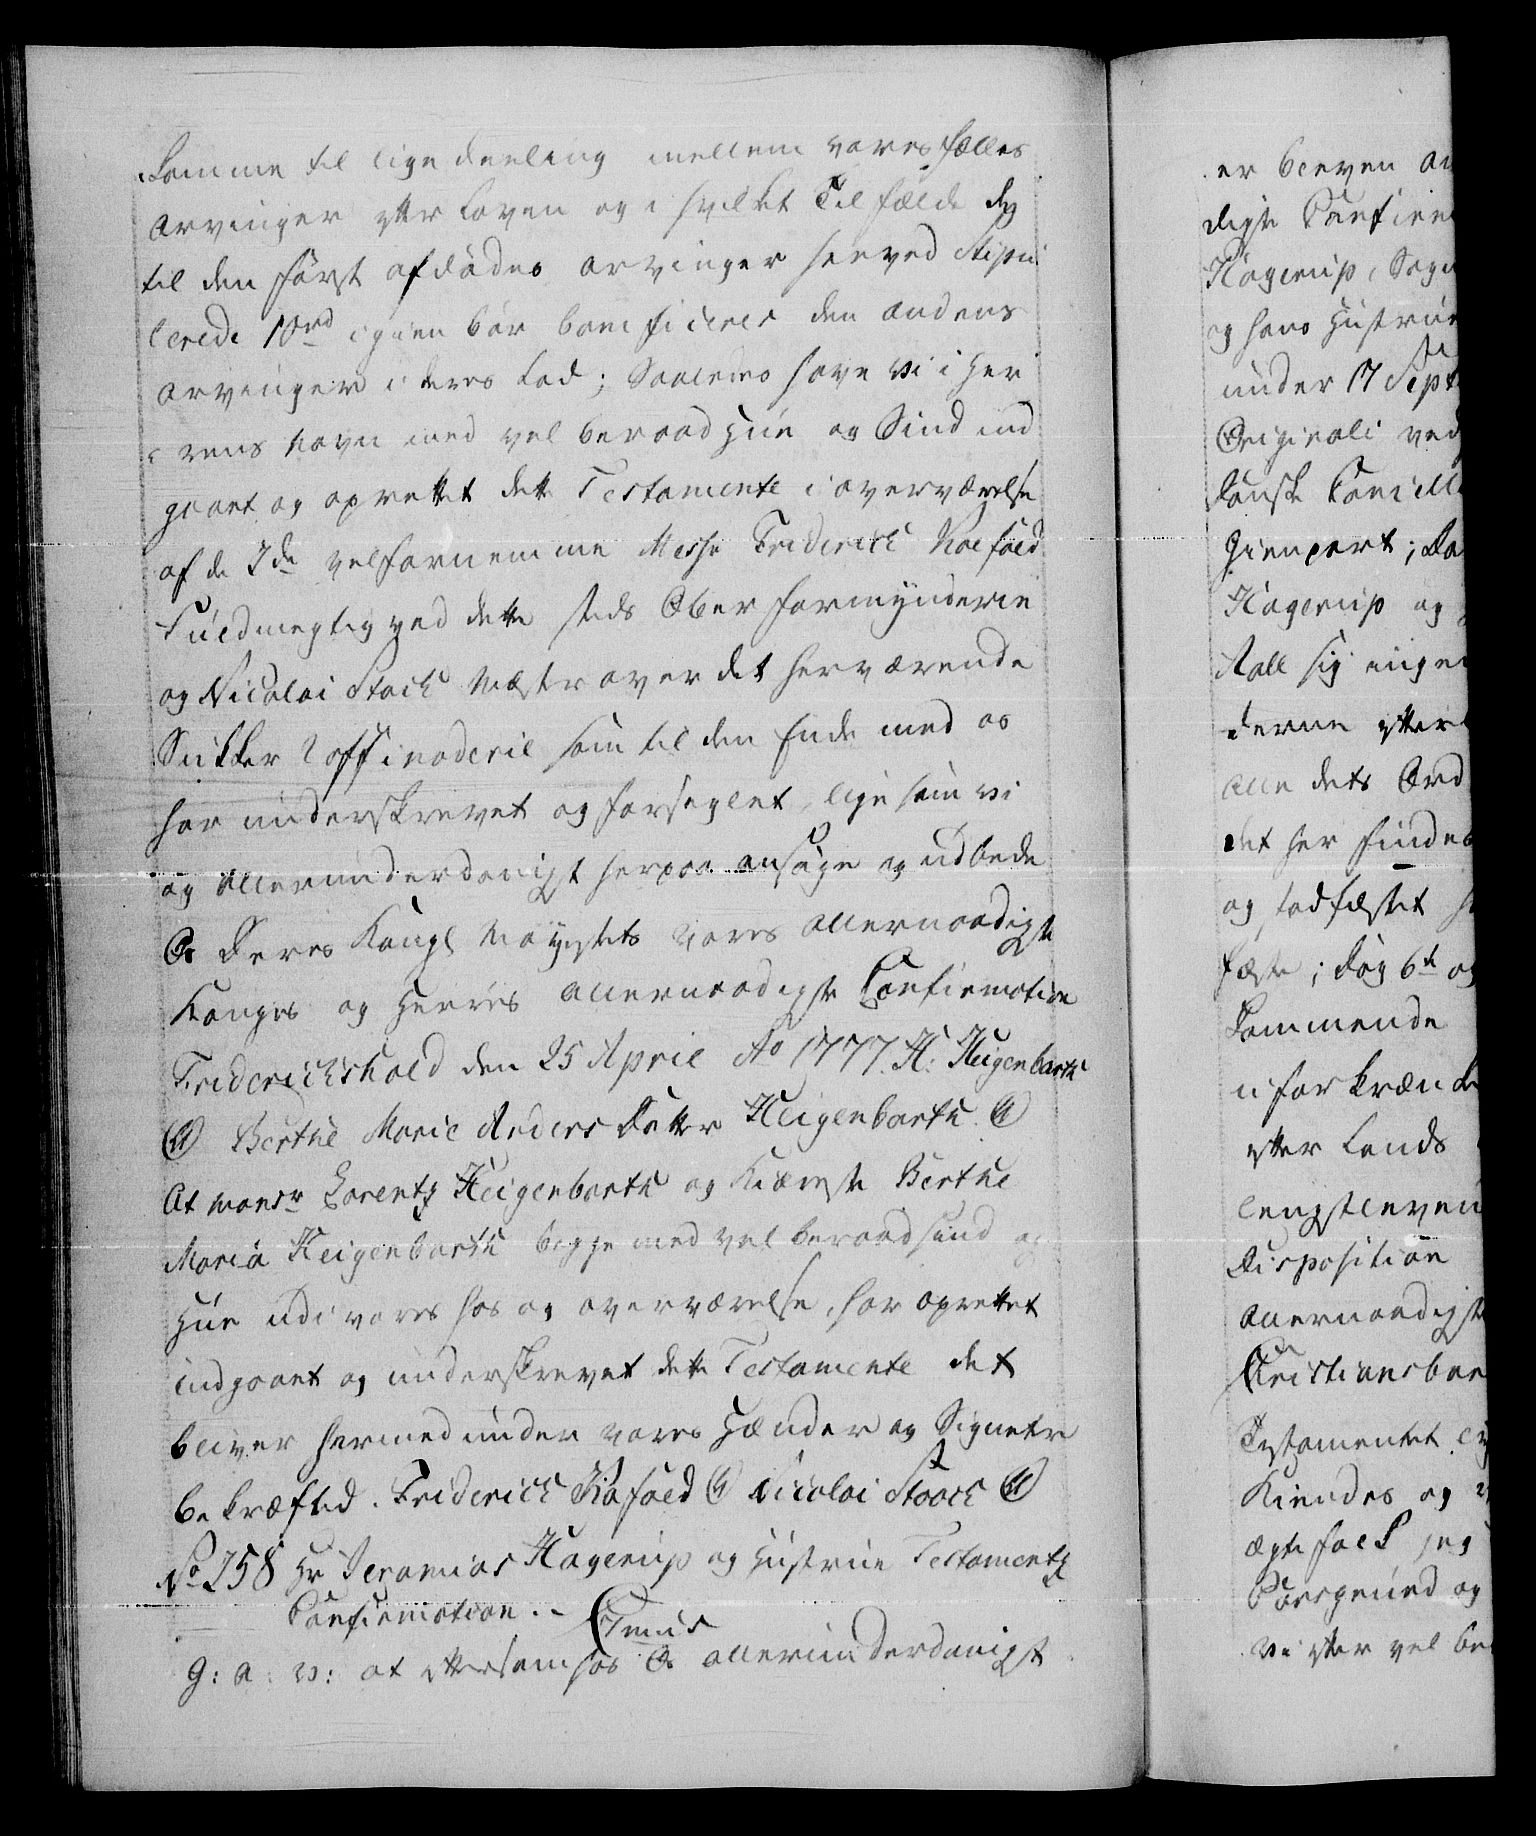 komme til lige deeling mellem vores fælles
Arvinger efter Loven og i hvilket Tilfælde de
til den først afdødes Arvinger herved Stipu
lerede 10rd igien bør bonificeres den andens
Arvinger i deres Lod; Saaledes have vi i Her
rens Navn med vel beraad Hue og Sind ind
gaaet og oprettet dette Testamente i overværelse
af de 2de velfornemme Messrs Friderich Koefoed
Fuldmegtig ved dette steds Ober formynderie
og Nicolai Stoch Mæster over det herværende
Sukker Raffinaderie som til den Ende med os
har underskrevet og forseglet, lige som vi
og allerunderdanigst herpaa ansøge og udbede
Os Deres Kongl Mayestets vores allernaadigste
Konges og Herres allernaadigste Confirmation
Friderichshald den 25 April Ao 1777. H: Heigenbarth
(LS) Berthe Marie Anders Datter Heigenbarth (LS)
At Monsr Lorentz Heigenbarth og Kiæreste Berthe
Maria Heigenbarth begge med vel beraad sind og
Hue udi vores hos og overværelse, har oprettet
indgaaet og underskrevet dette Testamente det
bliver hermed under vores Hænder og Signeter
bekræfted. Friderich Kofoed (LS) Nicolai Stoch (LS)
No 258 Hr Jeremias Hagerup og Hustrue Testaments
Confirmation.
G: a: v: at eftersom hos Os allerunderdanigst
er bleven an
digste Confirm
Hagerup, Sogn
og hans Hustrue
under 17 Sept
Originali ved
danske Cancelli
Gienpart; Da
Hagerup og
skall sig
derne efter
alle dets Ord
det her findes
og stadfæstet
fæste; dog
kommende
uforkrænke
efter Lands
lengstleven
Disposition
allernaadigst
Christiansbor
Testamentet
Kiendes og
ægtefolk jeg
Porsgrund og
vi efter vel be